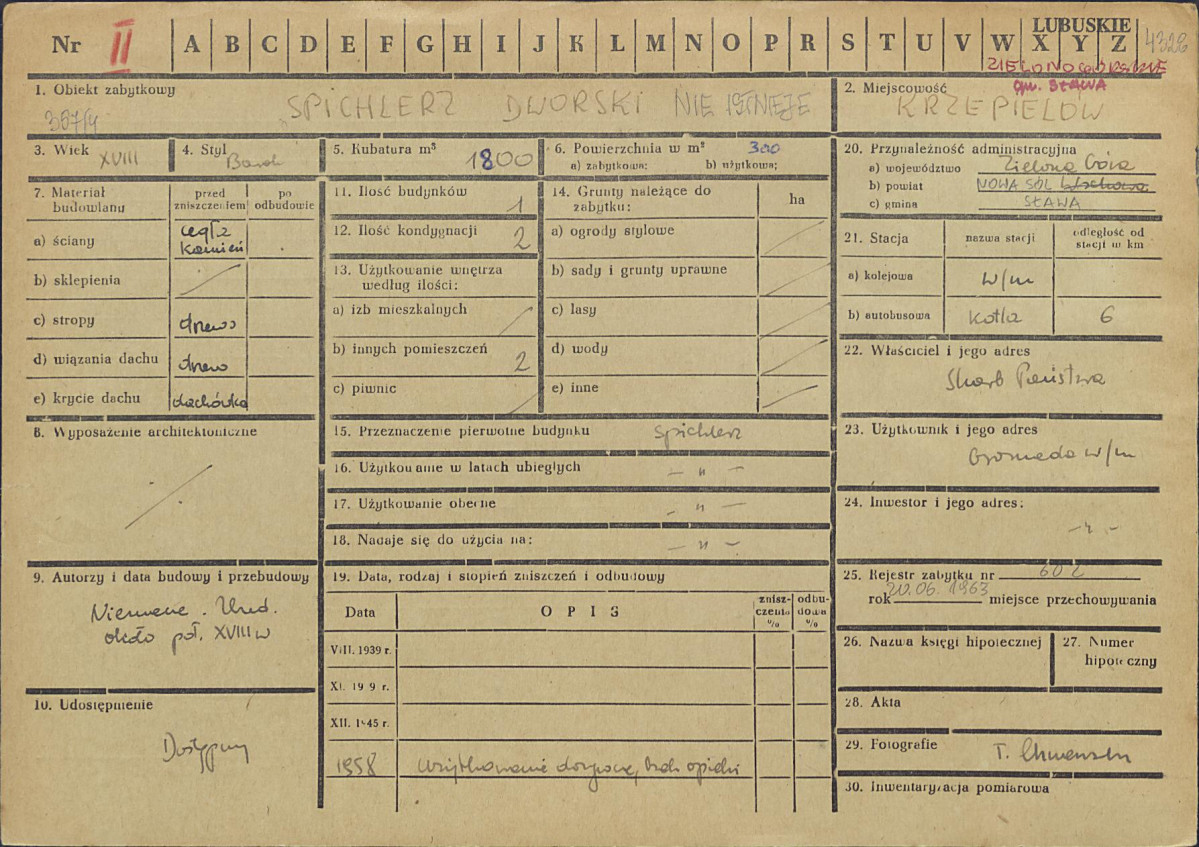 Nr II A B C D E F G H I J K L M N O P R S T U V W X Y Z
LUBUSKIE
4328
ZIELONOGÓRSKIE
gm. SŁAWA
1. Obiekt zabytkowy
357/4
SPICHLERZ DWORSKI NIE ISTNIEJE
2. Miejscowość
KRZEPIELÓW
3. Wiek XVIII
4. Styl Barok
5. Kubatura m³
1800
6. Powierzchnia w m² 300
a) zabytkowa: b) użytkowa:
7. Materiał budowlany
przed zniszczeniem
po odbudowie
a) ściany cegła kamień
b) sklepienia
c) stropy drewno
d) wiązania dachu drewno
e) krycie dachu dachówka
8. Wyposażenie architektoniczne
9. Autorzy i data budowy i przebudowy
Nieznane.
około poł. XVIII w
10. Udostępnienie
Dostępny
11. Ilość budynków 1
12. Ilość kondygnacji 2
13. Użytkowanie wnętrza według ilości:
a) izb mieszkalnych
b) innych pomieszczeń 2
c) piwnic
14. Grunty należące do zabytku:
ha
a) ogrody stylowe
b) sady i grunty uprawne
c) lasy
d) wody
e) inne
15. Przeznaczenie pierwotne budynku spichlerz
16. Użytkowanie w latach ubiegłych – " –
17. Użytkowanie obecne – " –
18. Nadaje się do użycia na: – " –
19. Data, rodzaj i stopień zniszczeń i odbudowy
Data
OPIS
zniszczenia %
odbudowa %
VIII. 1939 r.
XI. 19 9 r.
XII. 1945 r.
1958 użytkowanie dorywcze, brak opieki
20. Przynależność administracyjna
a) województwo Zielona Góra
b) powiat NOWA SÓL Wschowa
c) gmina SŁAWA
21. Stacja
nazwa stacji
odległość od stacji w km
a) kolejowa w/m
b) autobusowa Kotla 6
22. Właściciel i jego adres
Skarb Państwa
23. Użytkownik i jego adres
Gromada w/m
24. Inwestor i jego adres:
– " –
25. Rejestr zabytku nr 602
rok 20.06.1963 miejsce przechowywania
26. Nazwa księgi hipotecznej
27. Numer hipoteczny
28. Akta
29. Fotografie T.
30. Inwentaryzacja pomiarowa